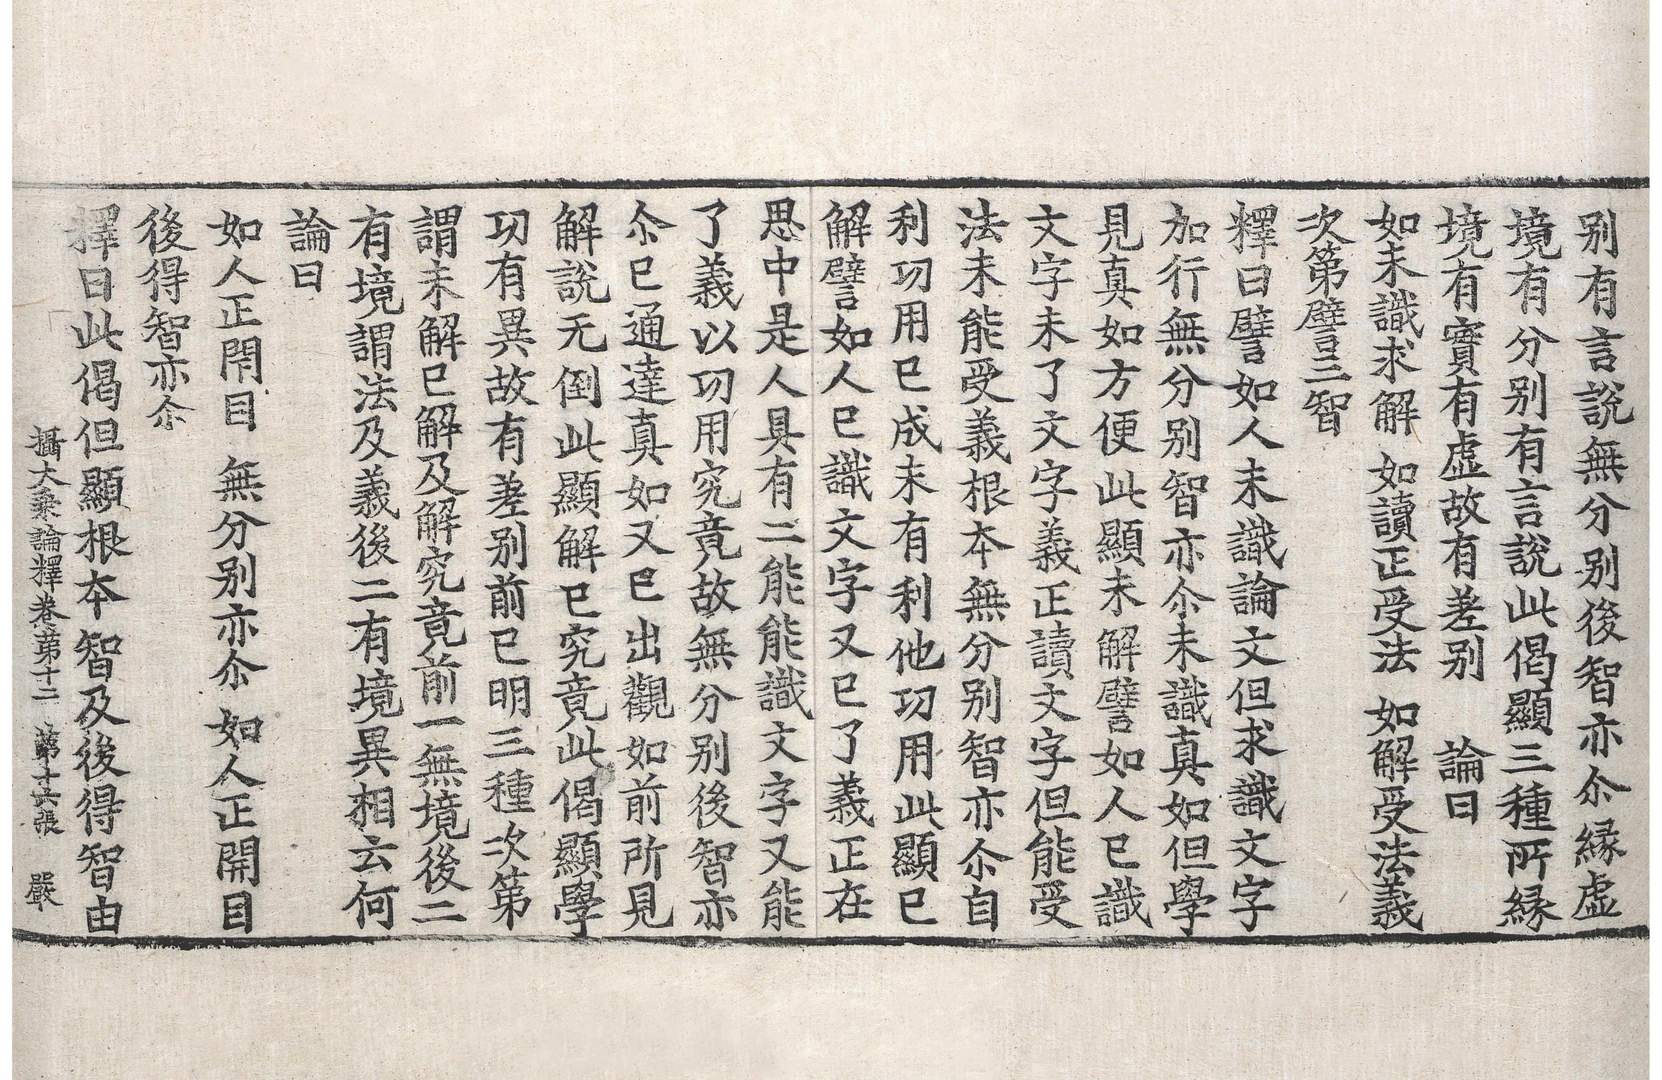 别有言說無分别後智亦尒縁虛
境有分别有言說此偈顯三種所縁
境有實有虛故有差别 論曰
如未識求解 如讀正受法 如解受法義
次第譬三智
釋曰譬如人未識論文但求識文字
加行無分别智亦尒未識真如但學
見真如方便此顯未解譬如人已識
文字未了文字義正讀文字但能受
法未能受義根本無分别智亦尒自
利功用已成未有利他功用此顯已
解譬如人已識文字又已了義正在
思中是人具有二能能識文字又能
了義以功用究竟故無分别後智亦
尒已通達真如又已出觀如前所見
解說无倒此顯解已究竟此偈顯學
功有異故有差别前已明三種次第
謂未解已解及解究竟前一無境後二
有境謂法及義後二有境異相云何
論曰
如人正閇目 無分别亦尒 如人正開目
後得智亦尒
釋曰此偈但顯根本智及後得智由
攝大乗論釋卷第十二 第十六張 嚴